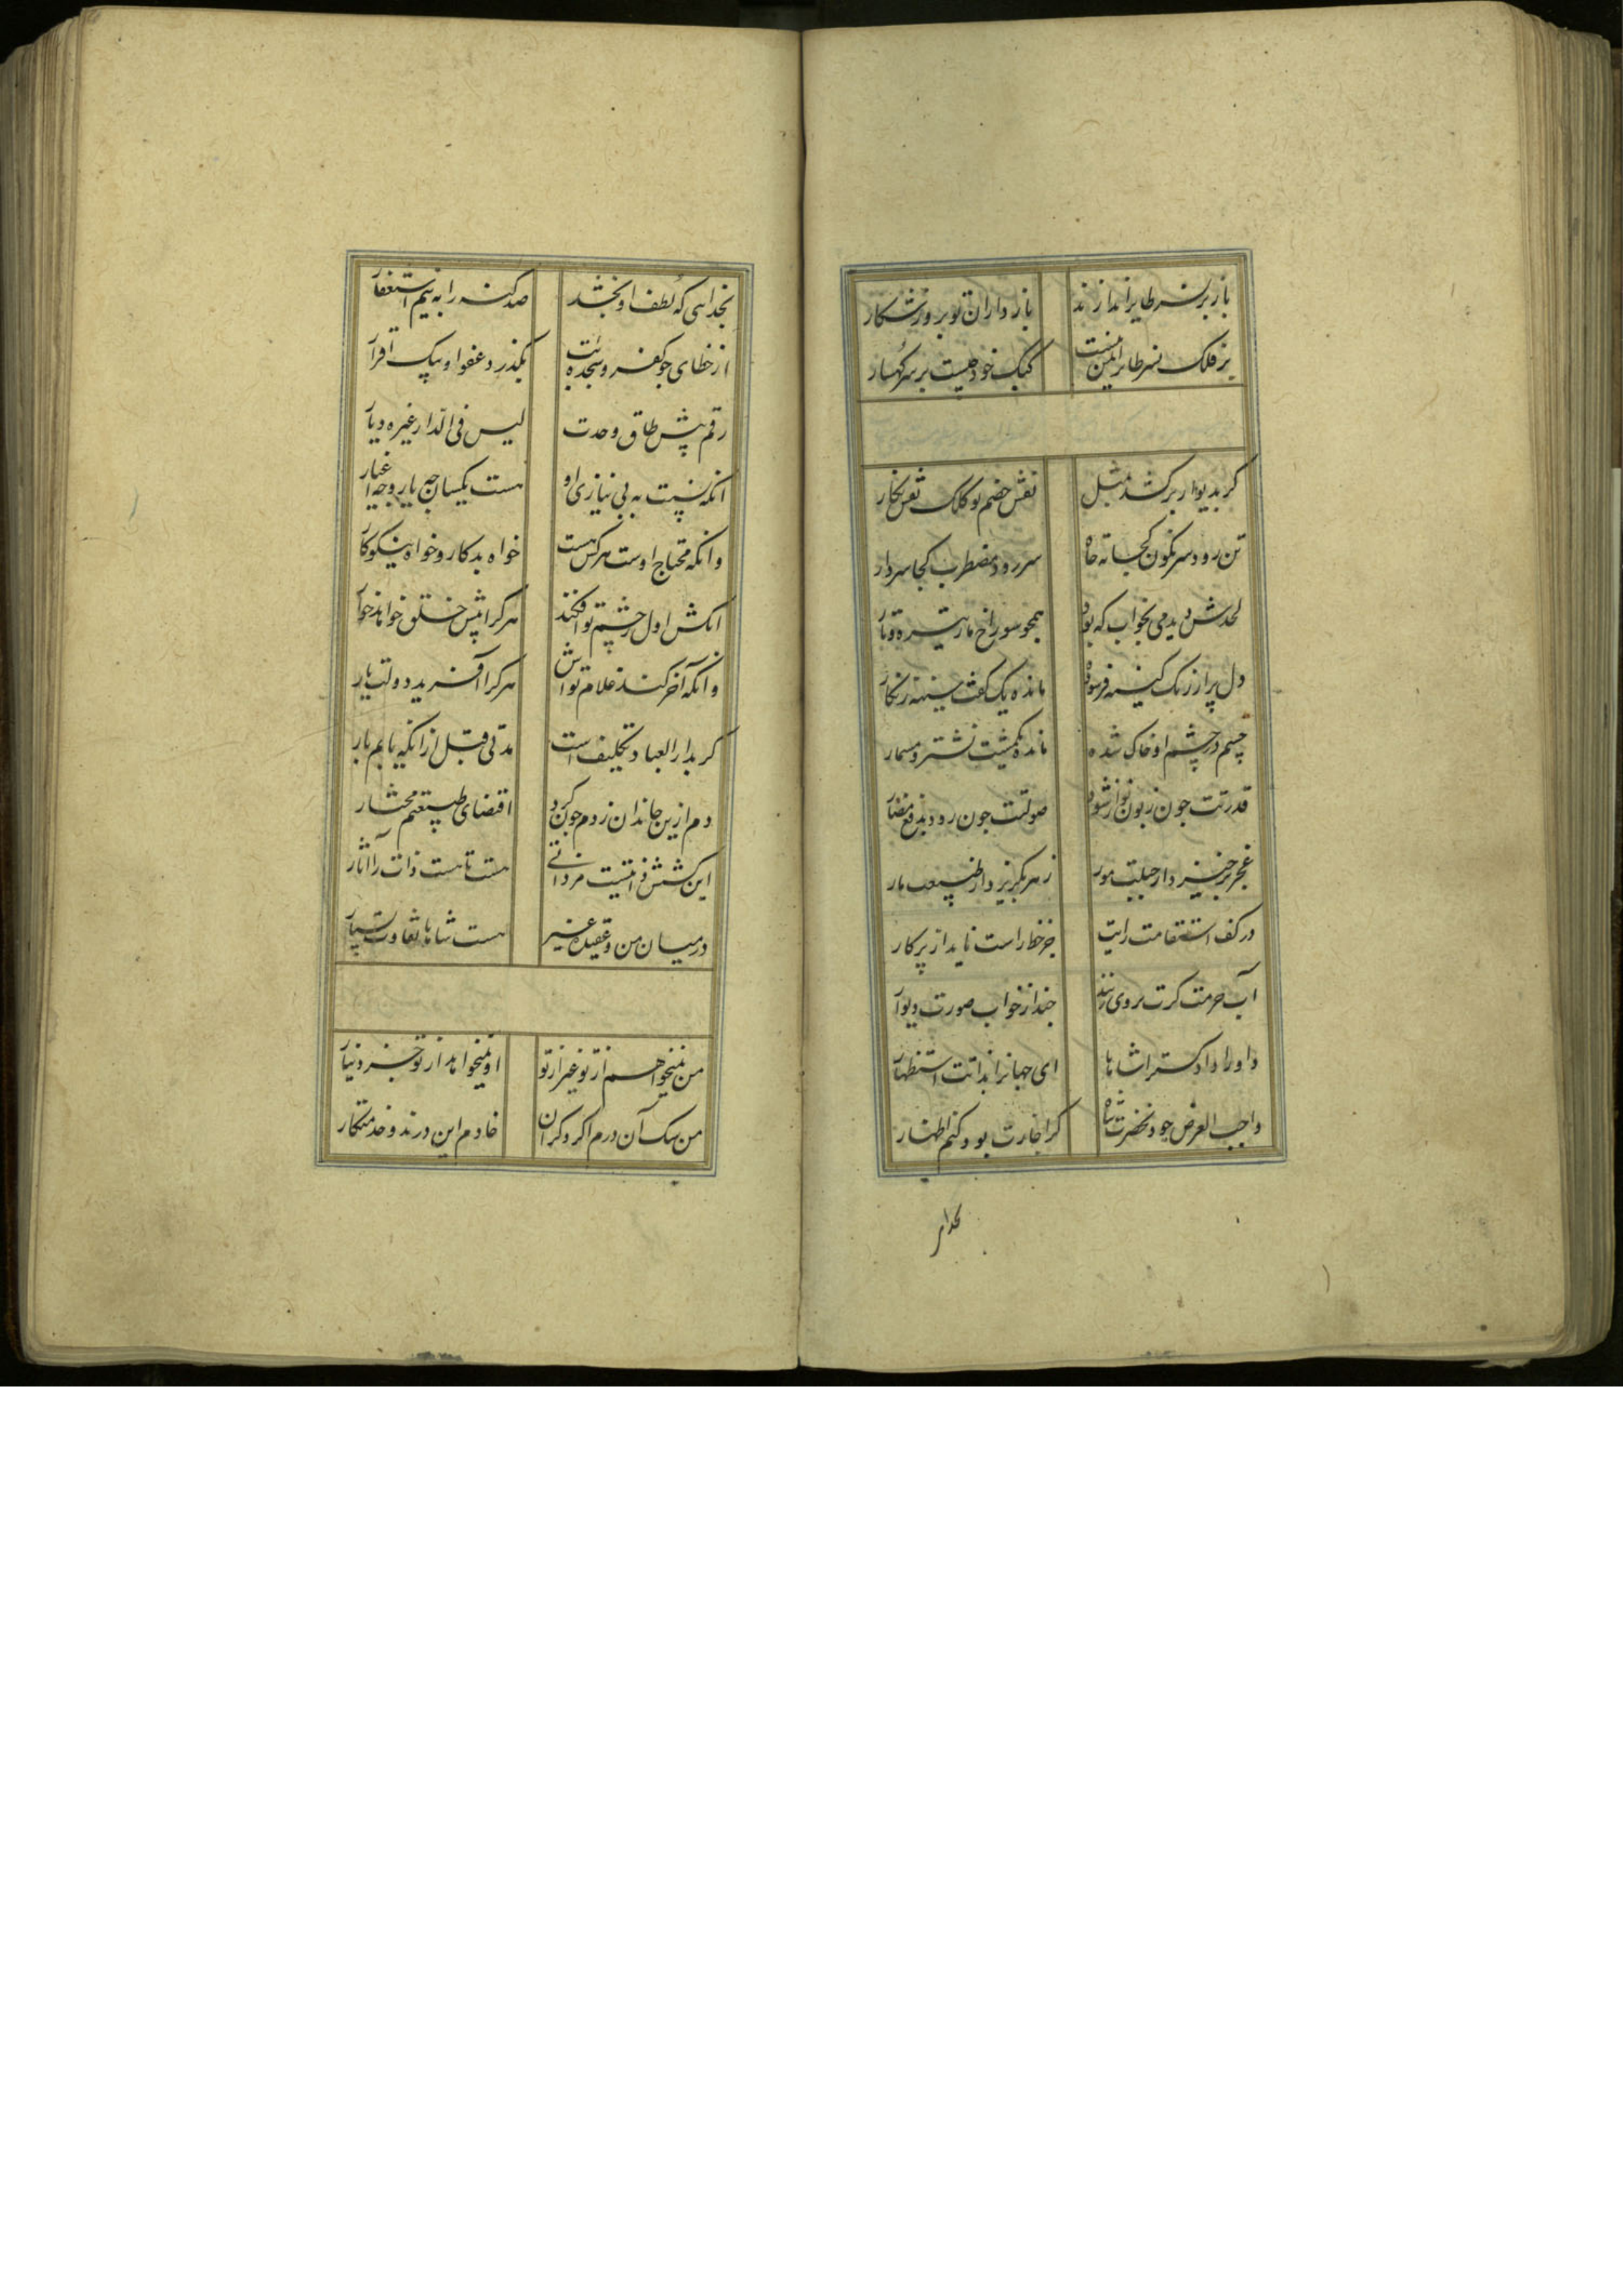 باز بر نسر طایر اندازند
بازداران تو بروز شکار
بر فلک نسر طایر ایمن نیست
کبک خود چیست بر سر کهسار
گر بدیوار برکشد بمثل
نقش خصم تو کلک نقش نگار
تن رود سرنگون کجا ته چاه
سر رود مضطرب کجا سر دار
لحدش دیدمی بخواب که بود
همچو سوراخ مار تیره و تار
دل پر از زنگ کینه فرسوده
مانده یک کف سینه زنگار
چشم در چشم او خاک شده
مانده یکمشت نشتر و مسمار
قدرتت چون زبون نواز شود
صولتت چون رود بدفع مضار
عجز برخیزد از جبلت مور
زهر بگریزد از طبیعت مار
در کف استقامت رایت
جز خط راست ناید از پرکار
آب حرمت گرت بروی زنند
جهد از خواب صورت دیوار
داورا دادگسترا شاها
ای جهانرا بذاتت استظهار
واجب العرض خود بحضرت شاه
گر اجازت بود کنم اظهار
بخدای
بخدایی که لطف او بخشد
صد گنه را به نیم استغفار
از خطای چو کفر و سجده بت
بگذرد عفو او بیک اقرار
رقم پیش طاق وحدت
لیس فی الدار غیره دیار
آنکه نسبت به بی نیازی او
هست یکسان چه یار و چه اغیار
وانکه محتاج اوست هر کس هست
خواه بدکار و خواه نیکوکار
آنکش اول ز چشم تو افکند
هر کرا پیش خلق خواهد خوار
وانکه آخر کند غلام تواش
هر کرا آفرید دولت یار
گر بدار العباد تکلیف است
مدتی قبل از آنکه یابم بار
دم ازین خاندان زدم چون کرد
اقتضای طبیعتم مختار
این کشش ذاتیست مر ذاتی
هست تا هست ذات را آثار
در میان من و عقیده غیر
هست شاها تفاوت بسیار
من نمیخواهم از تو غیر از تو
او نمیخواهد از تو جز دینار
من سگ آن درم اگر دگران
خادم این درند و خدمتکار